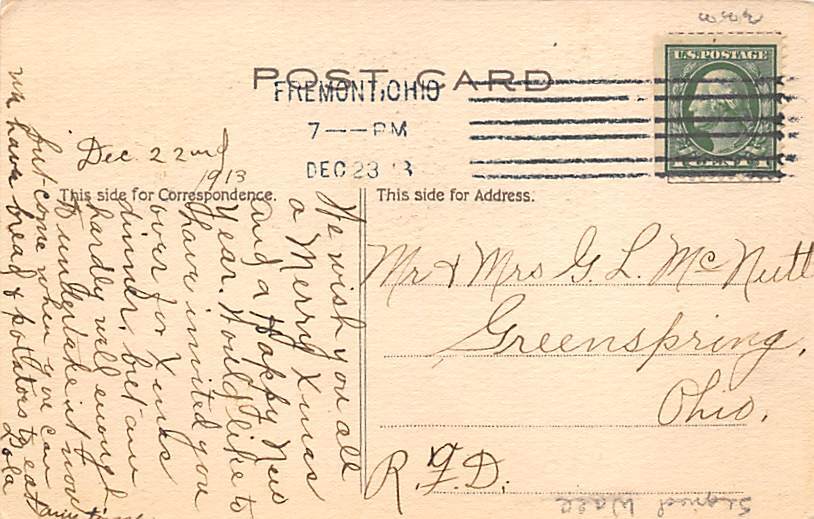 POST CARD
U.S. POSTAGE
FREMONT, OHIO
7 -- PM
DEC 23 13
This side for Correspondence.
This side for Address.
Dec. 22nd
1913
We wish you all
a Merry Xmas
and a Happy New
Year. Would like to
have invited you
over for Xmas
dinner, but am
hardly well enough
to undertake it now
but come when you can
we have bread & potatoes to eat
any time
Lola
Mr & Mrs G. L. McNutt
Greenspring,
Ohio,
R.F.D.
Signed Wall